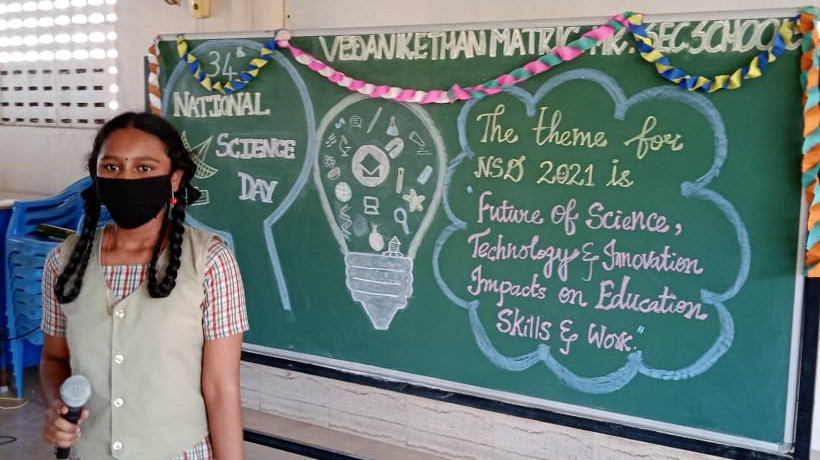 VEDANIKETHAN MATRIC. HR. SEC. SCHOOL
34th
NATIONAL
SCIENCE
DAY
The theme for
NSD 2021 is
"Future Of Science,
Technology & Innovation
Impacts on Education
Skills & Work."